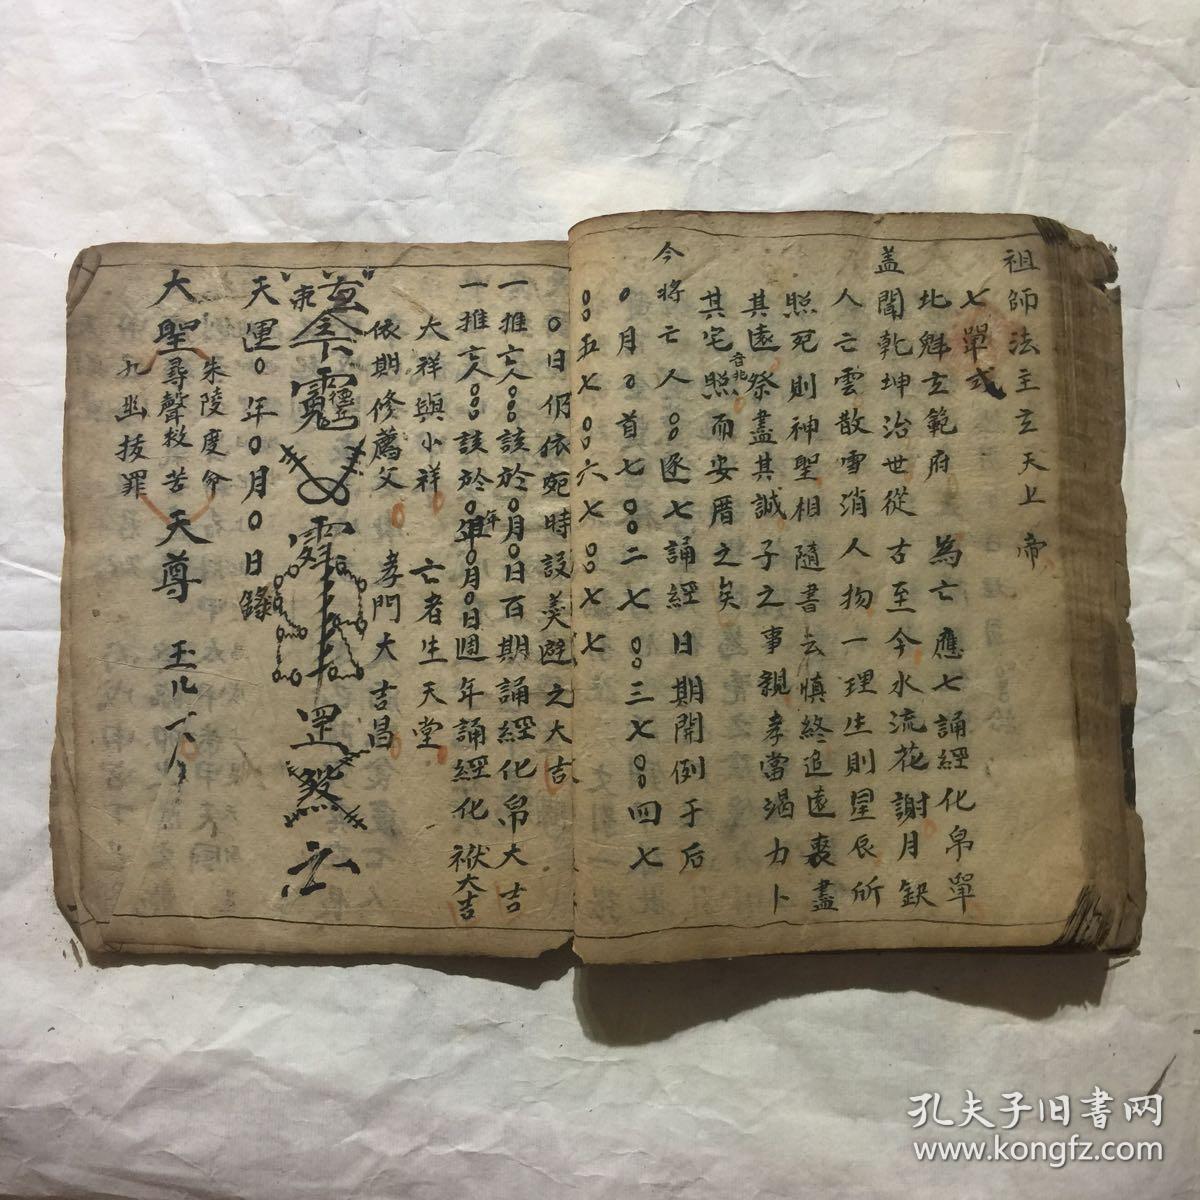 祖師法主玄天上帝
七單式
北魁玄範府 為亡應七誦經化帛單
盖聞乾坤治世從古至今水流花謝月缺
人亡雲散雪消人物一理生則星辰所
照死則神聖相隨書云慎終追遠喪盡
其遠祭盡其誠子之事親孝當竭力卜
其宅照而安厝之矣
今將亡人〇〇逐七誦經日期開例于后
〇月〇首七〇〇二七〇〇三七〇〇四七
〇〇五七〇〇六七〇〇七七
〇日仍依死時設羙避之大吉
一推亡人〇〇該於〇月〇日百期誦經化帛大吉
一推亡人〇〇該於〇年〇月〇日週年誦經化袱大吉
大祥與小祥 亡者生天堂
依期修薦父 孝門大吉昌
天運〇年〇月〇日錄
朱陵度命
大聖尋聲救苦天尊
九幽拔罪
孔夫子旧書网
www.kongfz.com